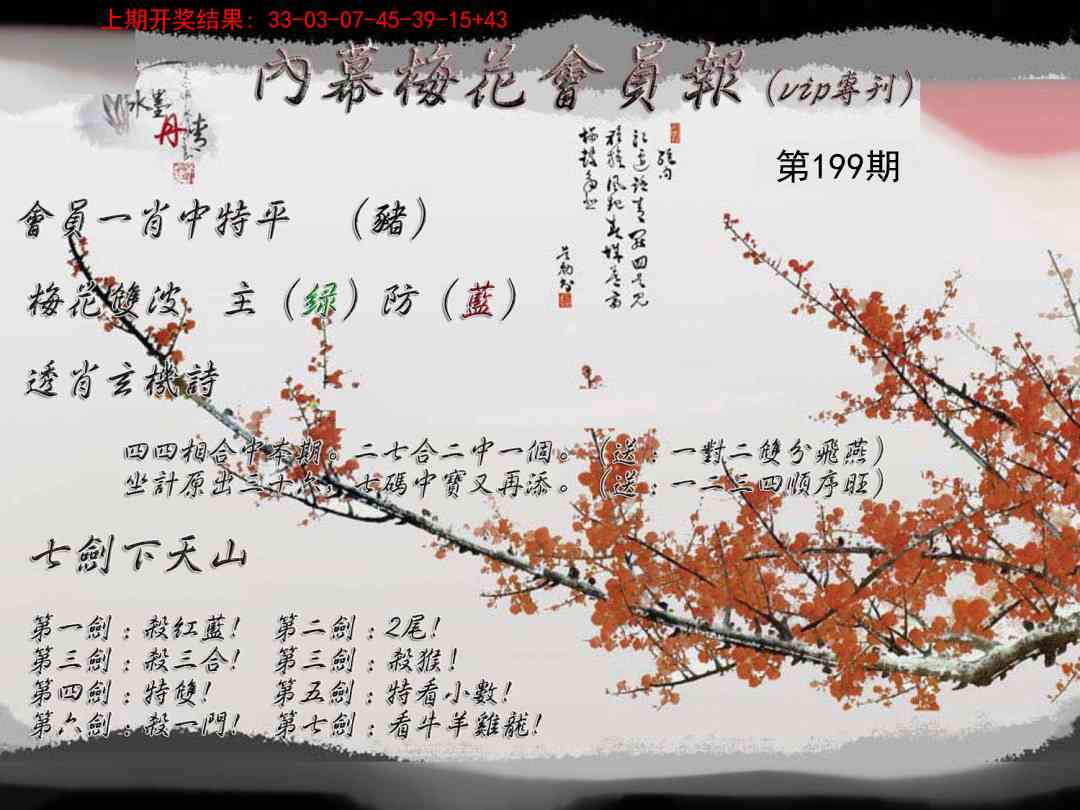 上期开奖结果: 33-03-07-45-39-15+43
內幕梅花會員報(vip專刊)
水墨丹青
第199期
會員一肖中特平 （豬）
梅花雙波 主（绿）防（藍）
透肖玄機詩
四四相合中本期。二七合二中一個。（送：一對二雙分飛燕）
坐計原出三十六，七碼中寶又再添。（送：一二三四順序旺）
七劍下天山
第一劍：殺紅藍! 第二劍：2尾!
第三劍：殺三合! 第三劍：殺猴!
第四劍：特雙! 第五劍：特看小數!
第六劍：殺一門! 第七劍：看牛羊雞龍!